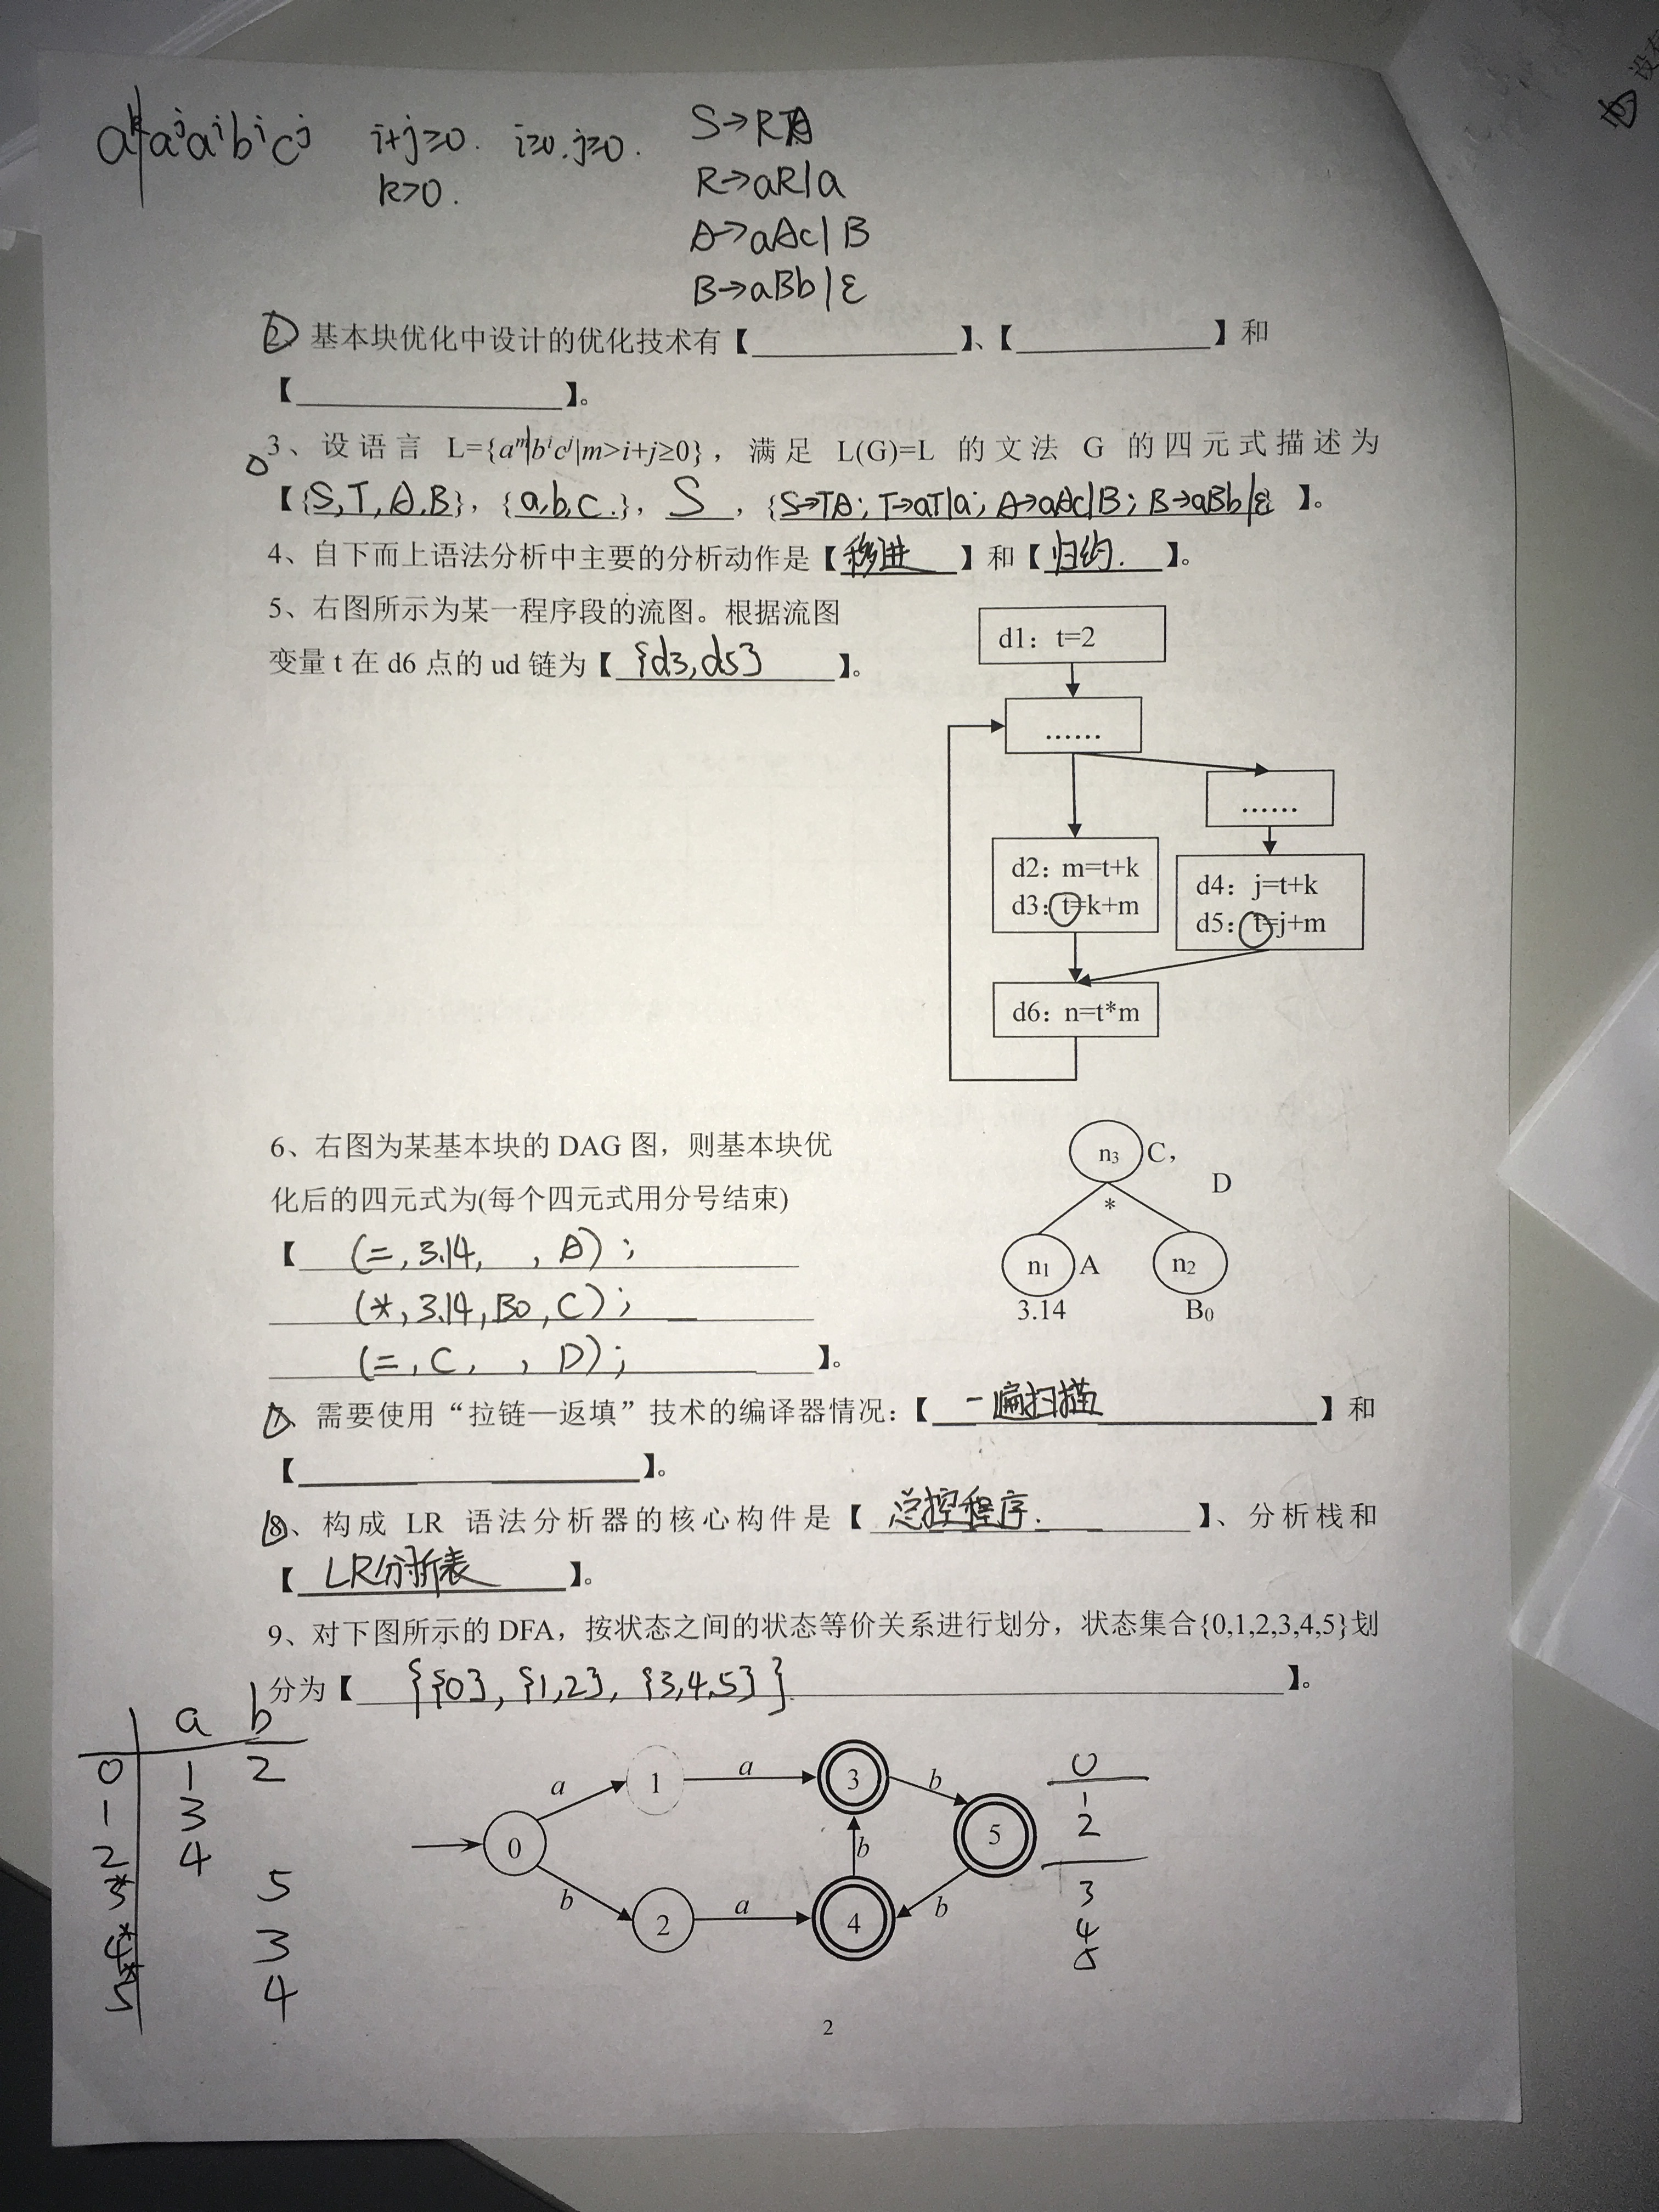 aᵏaʲaⁱbⁱcʲ i+j≥0. i≥0.j≥0.
k>0.
S→RA
R→aR|a
A→aAc|B
B→aBb|ε
2、基本块优化中设计的优化技术有【____】、【____】和
【____】。
3、设语言 L={aᵐbⁱcʲ|m>i+j≥0}，满足 L(G)=L 的文法 G 的四元式描述为
【{S,T,A,B}, {a,b,c.}, S, {S→TA; T→aT|a; A→aAc|B; B→aBb|ε}】。
4、自下而上语法分析中主要的分析动作是【移进】和【归约.】。
5、右图所示为某一程序段的流图。根据流图
变量 t 在 d6 点的 ud 链为【{d3,d5}】。
d1：t=2
……
……
d2：m=t+k
d3：t=k+m
d4：j=t+k
d5：t=j+m
d6：n=t*m
6、右图为某基本块的 DAG 图，则基本块优
化后的四元式为(每个四元式用分号结束)
【(=,3.14, ,A);
(*,3.14,B0,C);
(=,C, ,D);】。
n₃ C，
D
*
n₁ A n₂
3.14 B₀
7、需要使用“拉链—返填”技术的编译器情况：【一遍扫描】和
【____】。
8、构成 LR 语法分析器的核心构件是【总控程序.】、分析栈和
【LR分析表】。
9、对下图所示的 DFA，按状态之间的状态等价关系进行划分，状态集合{0,1,2,3,4,5}划
分为【{{0}, {1,2}, {3,4,5}}】。
a b
0 1 2
1 3
2 4
3* 5
4* 3
5* 4
a 1 a 3 b
0 b 5
b 2 a 4 b
0
1
2
3
4
5
2